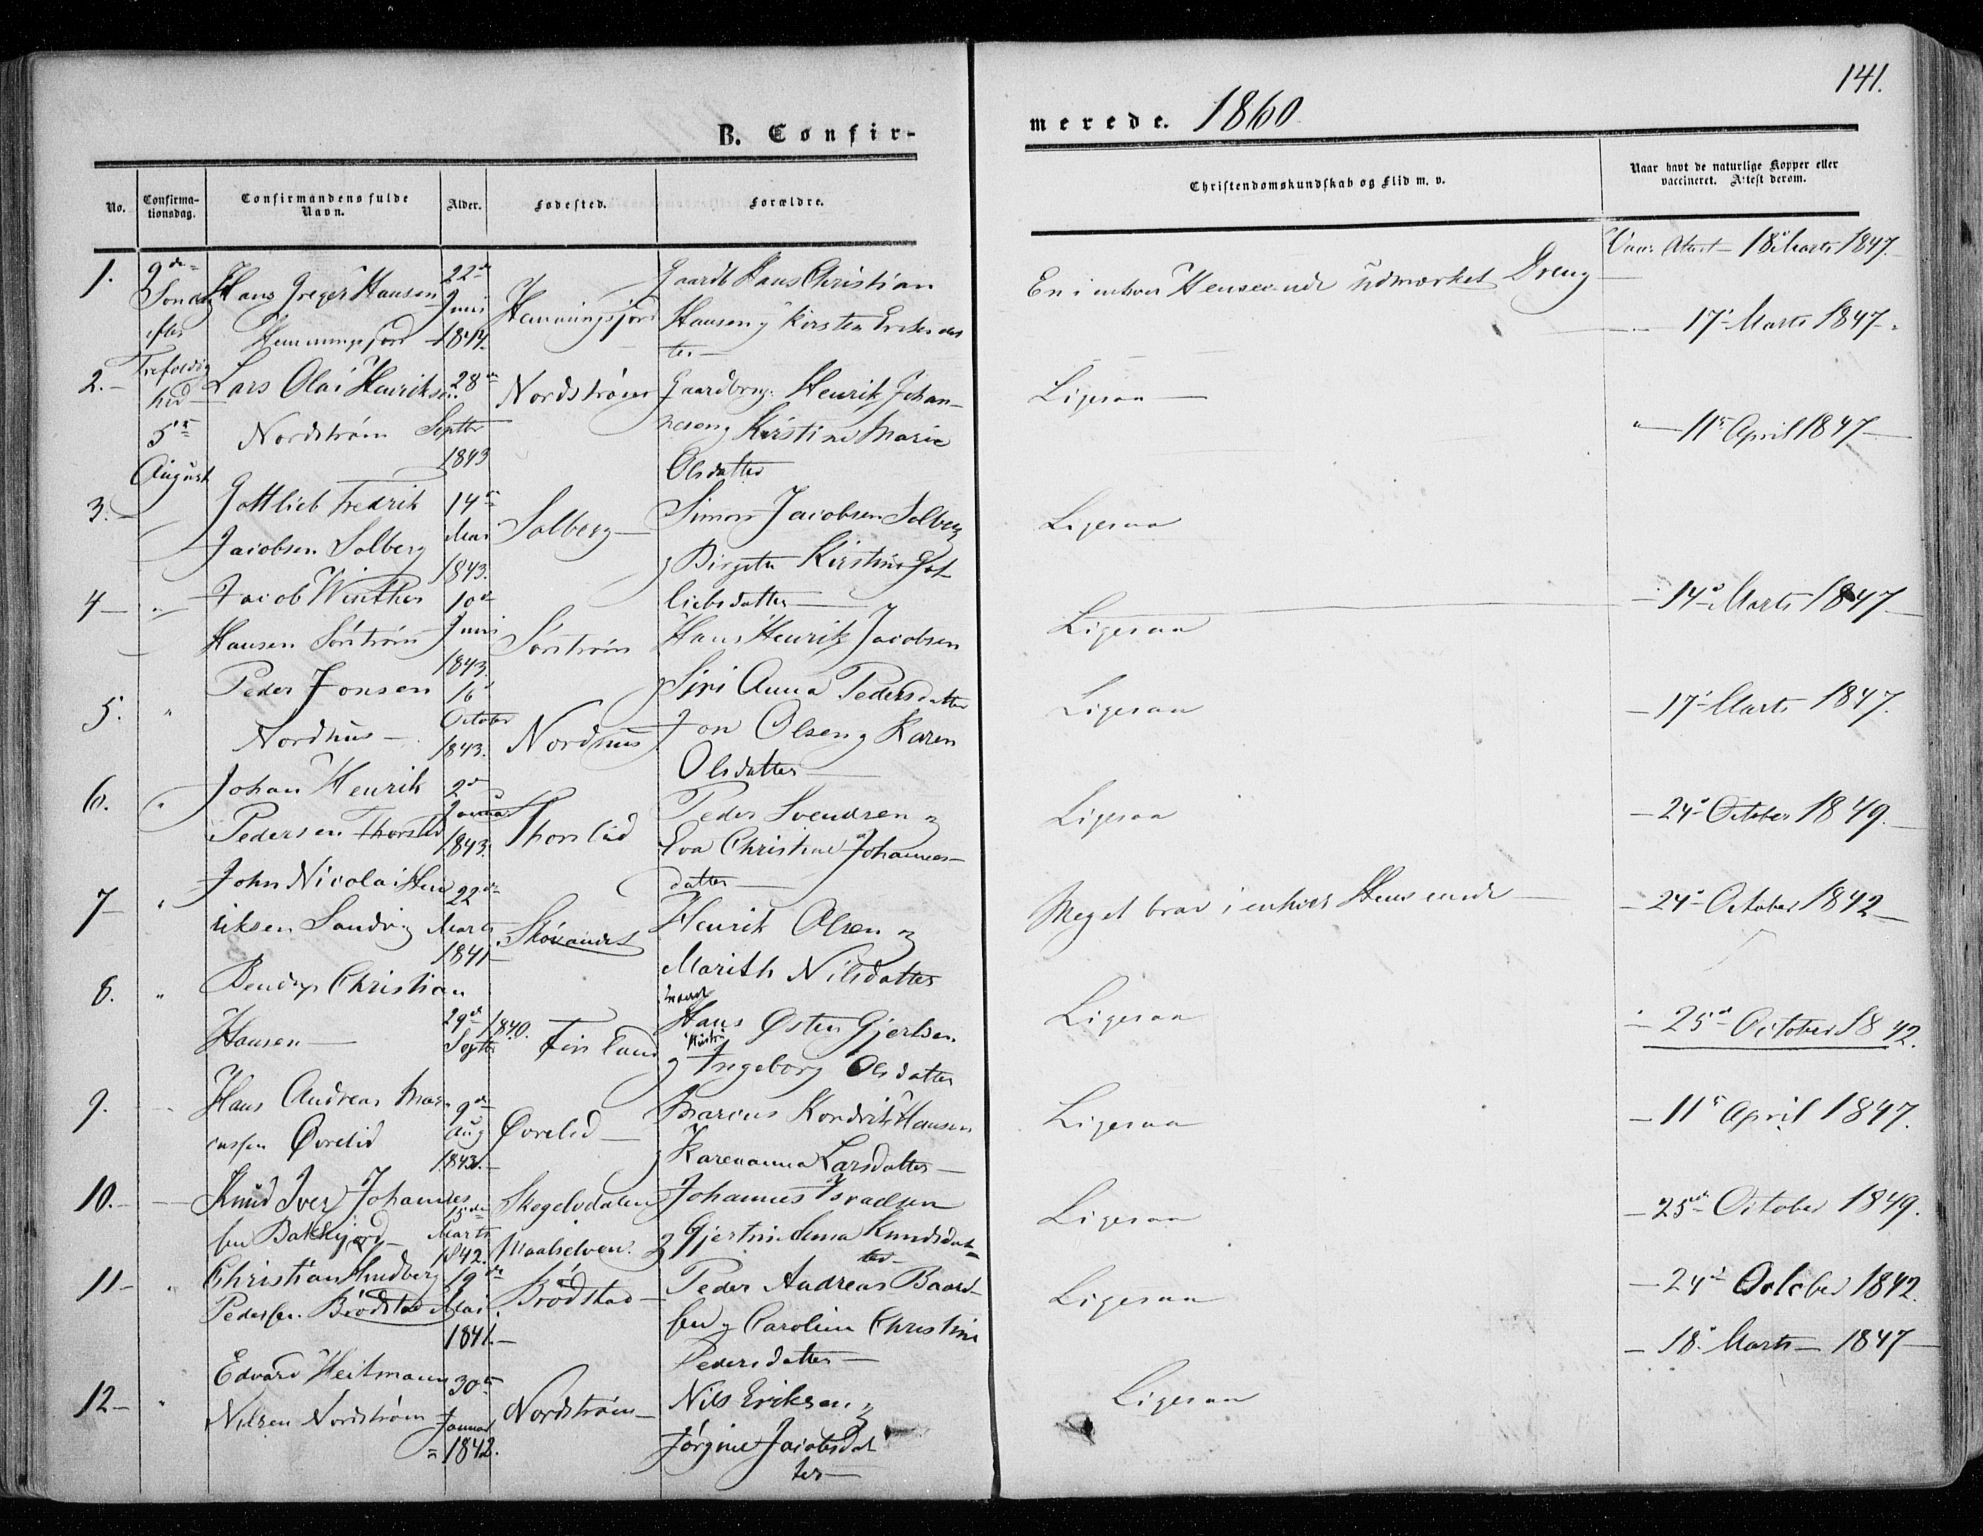 141.
B. Confir-
merede. 1860
No.
Confirma-
tionsdag.
Confirmandens fulde
Navn.
Alder.
Fødested.
Forældre.
Christendomskundskab og Flid m. v.
Naar havt de naturlige Kopper eller
vaccineret. Attest derom.
1.
9de
Søndag
efter
Trefoldig
hed
5te
August
Hans Greger Hansen
Hemmingsfjord
22de
Juni
1844.
Hemmingsfjord
Gaardb Hans Christian
Hansen og Kirsten
ter
En i enhver Henseende udmærket Dreng
Vacc. Attest 18 Marts 1847.
17 Marts 1847.
2.
Lars Olai Henriksen
Nordstrøm
28de
Septbr
1843
Nordstrøm
Gaardbrug. Henrik Johan-
nesen og Kirstine Marie
Olsdatter
Ligesaa
11te April 1847
3.
Gottlieb Fredrik
Jacobsen Solberg
14de
Mai
1843.
Solberg
Simon Jacobsen Solberg
og Birgete Kirstine Got
liebsdatter
Ligesaa
14de Marts 1847
4
Jacob Winther
Hansen Sørstrøm
10de
Juni
1843.
Sørstrøm
Hans Henrik Jacobsen
og Siri Anna Pedersdatter
Ligesaa
17 Marts 1847.
5.
Peder Jonsen
Nordhus
16
October
1843.
Nordhus
Jon Olsen og Karen
Olsdatter
Ligesaa
24de October 1849.
6.
Johan Henrik
Pedersen Thorslid
2de
Januar
1843.
Thorslid
Peder Svendsen og
Eva Christine Johannes-
datter
Ligesaa
24 October 1842
7
John Nicolai Hen
riksen Sandvig
22de
Marts
1841
Skövandet
Henrik Olsen og
Marith Nilsdatter
Meget brav i enhver Henseende
25de October 1842.
8.
Bendix Christian
Hansen
29de 1840.
Septbr
Finland
Hans Østen Gjertsen
og Hustru Ingeborg Olsdatter
Ligesaa
11te April 1847.
9.
Hans Andreas Mari
nussen Øvrelid
9de
Aug
1843.
Øvrelid
Marius Kondrik Hansen
og Karenanna Larsdatter
Ligesaa
25de October 1849.
10.
Knud Iver Johannes
sen Bakkejord
Marts
1842.
Skogelvdalen
Maalselven.
Johannes Israelsen
og Gjertine Anna Knudsdat-
ter
Ligesaa
24de October 1842.
11
Christian Hindberg
Pedersen Brödstad
19de
Mai
1841.
Brödstad
Peder Andreas Baard-
sen og Caroline Christine
Pedersdatter
Ligesaa
18. Marts 1847
12
Edvard Heitmann
Nilsen Nordstrøm
30te
Januar
1842.
Nordstrøm
Nils Eriksen og
Jörgine Jacobsdat
ter
Ligesaa